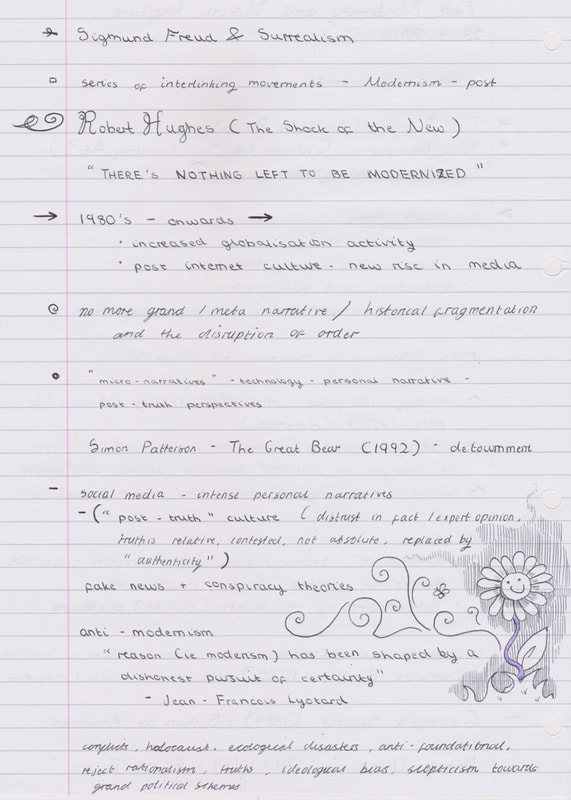 Sigmund Freud & Surrealism
series of interlinking movements - Modernism - post
Robert Hughes (The Shock of the New)
"THERE'S NOTHING LEFT TO BE MODERNIZED"
→ 1980's - onwards →
· increased globalisation activity
· post internet culture - new rise in media
no more grand / meta narrative / historical fragmentation
and the disruption of order
"micro-narratives" - technology - personal narrative -
post-truth perspectives
Simon Patterson - The Great Bear (1992) - detournment
- social media - intense personal narratives
- ("post-truth" culture (distrust in fact/expert opinion,
truthis relative, contested, not absolute, replaced by
"authenticity")
fake news + conspiracy theories
anti-modernism
"reason (ie moderism) has been shaped by a
dishonest pursuit of certainty"
- Jean-Francois Lyotard
conflicts, holocaust, ecological disasters, anti-foundational,
reject rationalism, truths, ideological bias, scepticism towards
grand political schemes